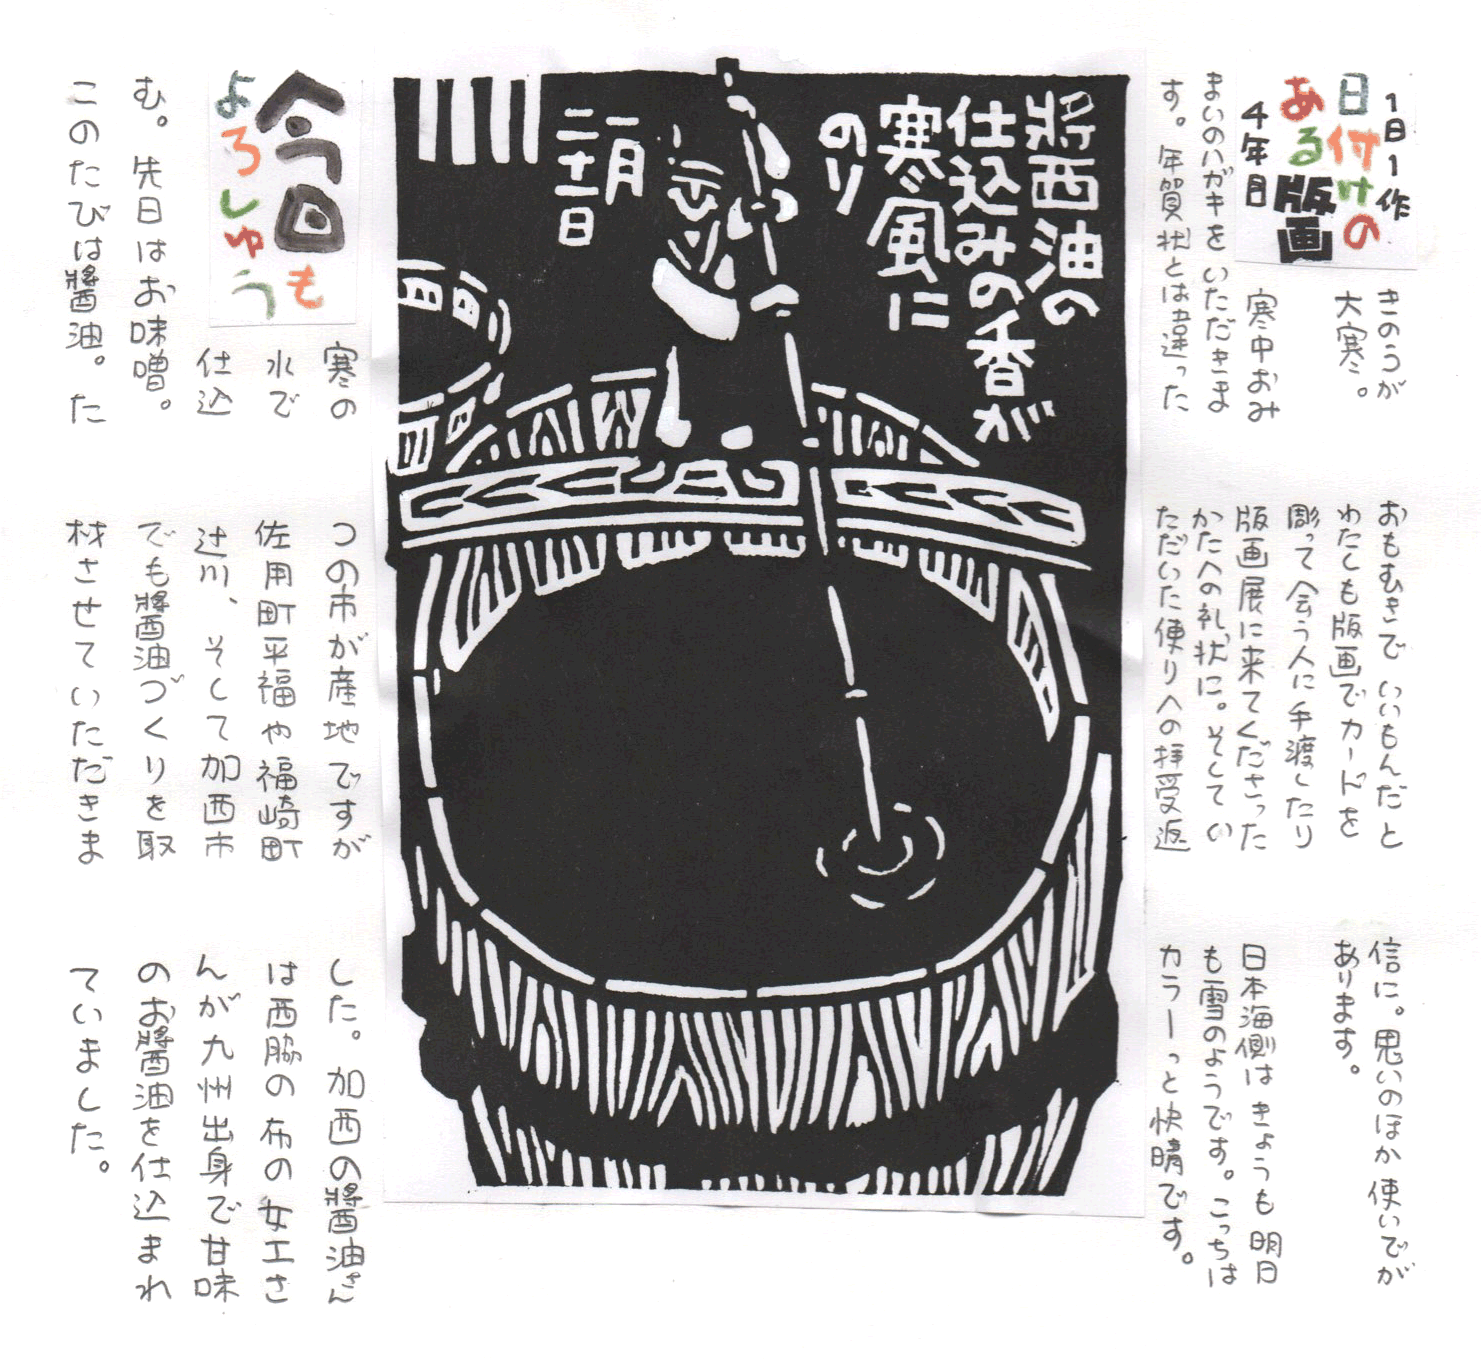 1日1作
日付けの
ある版画
4年目
きのうが
大寒。
寒中おみ
まいのハガキをいただきま
す。年賀状とは違った
おもむきでいいもんだと
わたしも版画でカードを
彫って会う人に手渡したり
版画展に来てくださった
かたへの礼状に。そしてい
ただいた便りへの拝受返
信に。思いのほか使いでが
あります。
日本海側はきょうも明日
も雪のようです。こっちは
カラーっと快晴です。
醬油の
仕込みの香が
寒風に
のり
一月
二十一日
今日も
よろしゅう
寒の
水で
仕込
む。先日はお味噌。
このたびは醬油。た
つの市が産地ですが
佐用町平福や福崎町
辻川、そして加西市
でも醬油づくりを取
材させていただきま
した。加西の醬油さん
は西脇の布の女工さ
んが九州出身で甘味
のお醬油を仕込まれ
ていました。